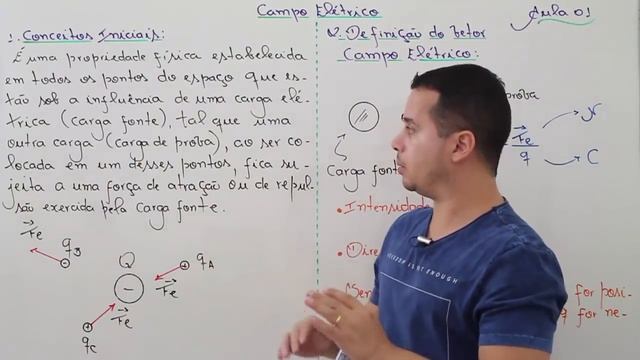 Campo Elétrico
Aula 01
1. Conceitos Iniciais:
É uma propriedade física estabelecida
em todos os pontos do espaço que es-
tão sob a influência de uma carga elé-
trica (carga fonte), tal que uma
outra carga (carga de prova), ao ser co-
locada em um desses pontos, fica su-
jeita a uma força de atração ou de repul-
são exercida pela carga fonte.
Fe
qB
+
Q
-
qA
+
Fe
Fe
+
qC
2. Definição do vetor
Campo Elétrico:
prova
Carga font
Fe
q
N
C
• Intensidade
• Dire
Sen
for posi-
q for ne-
FREEDOM IS NOT ENOUGH